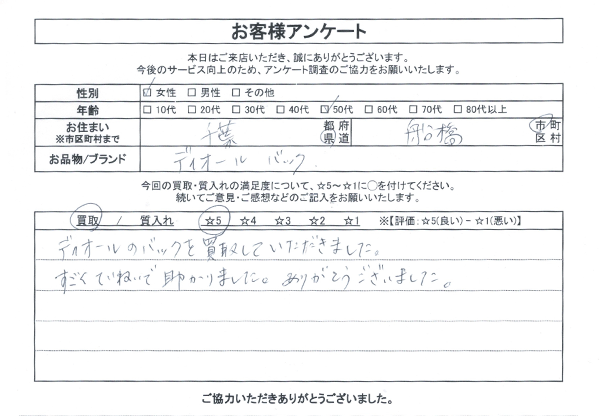 お客様アンケート
本日はご来店いただき、誠にありがとうございます。
今後のサービス向上のため、アンケート調査のご協力をお願いいたします。
性別 ☑ 女性 □ 男性 □ その他
年齢 □ 10代 □ 20代 □ 30代 □ 40代 ☑ 50代 □ 60代 □ 70代 □ 80代以上
お住まい ※市区町村まで 千葉 都府県道 船橋 市町区村
お品物/ブランド ディオール バック
今回の買取・質入れの満足度について、☆5～☆1に○を付けてください。
続いてご意見・ご感想などのご記入をお願いいたします。
買取 / 質入れ ☆5 ☆4 ☆3 ☆2 ☆1 ※【評価:☆5(良い)-☆1(悪い)】
ディオールのバックを買取していただきました。
すごくていねいで助かりました。ありがとうございました。
ご協力いただきありがとうございました。